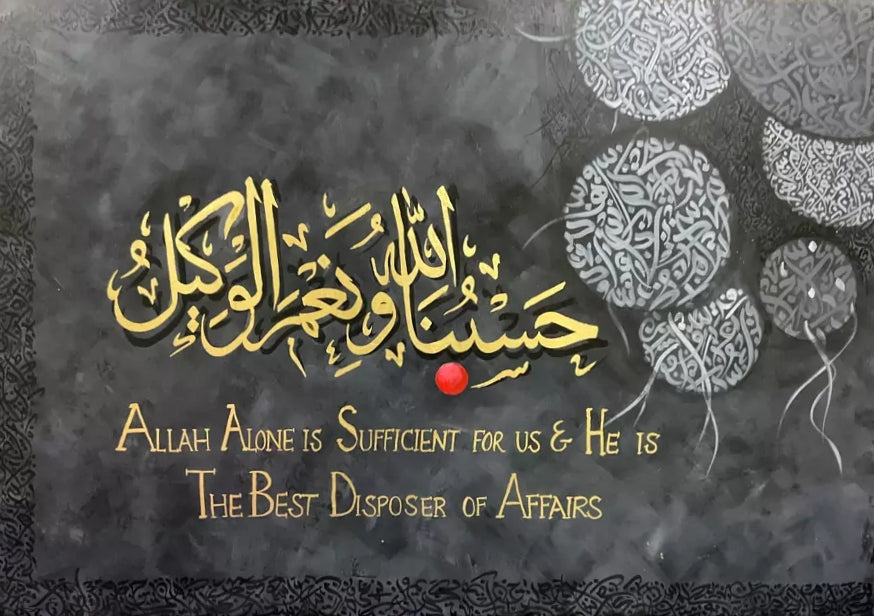 حَسْبُنَا اللّٰهُ وَنِعْمَ الْوَكِيْلُ
ALLAH ALONE IS SUFFICIENT FOR US & HE IS
THE BEST DISPOSER OF AFFAIRS